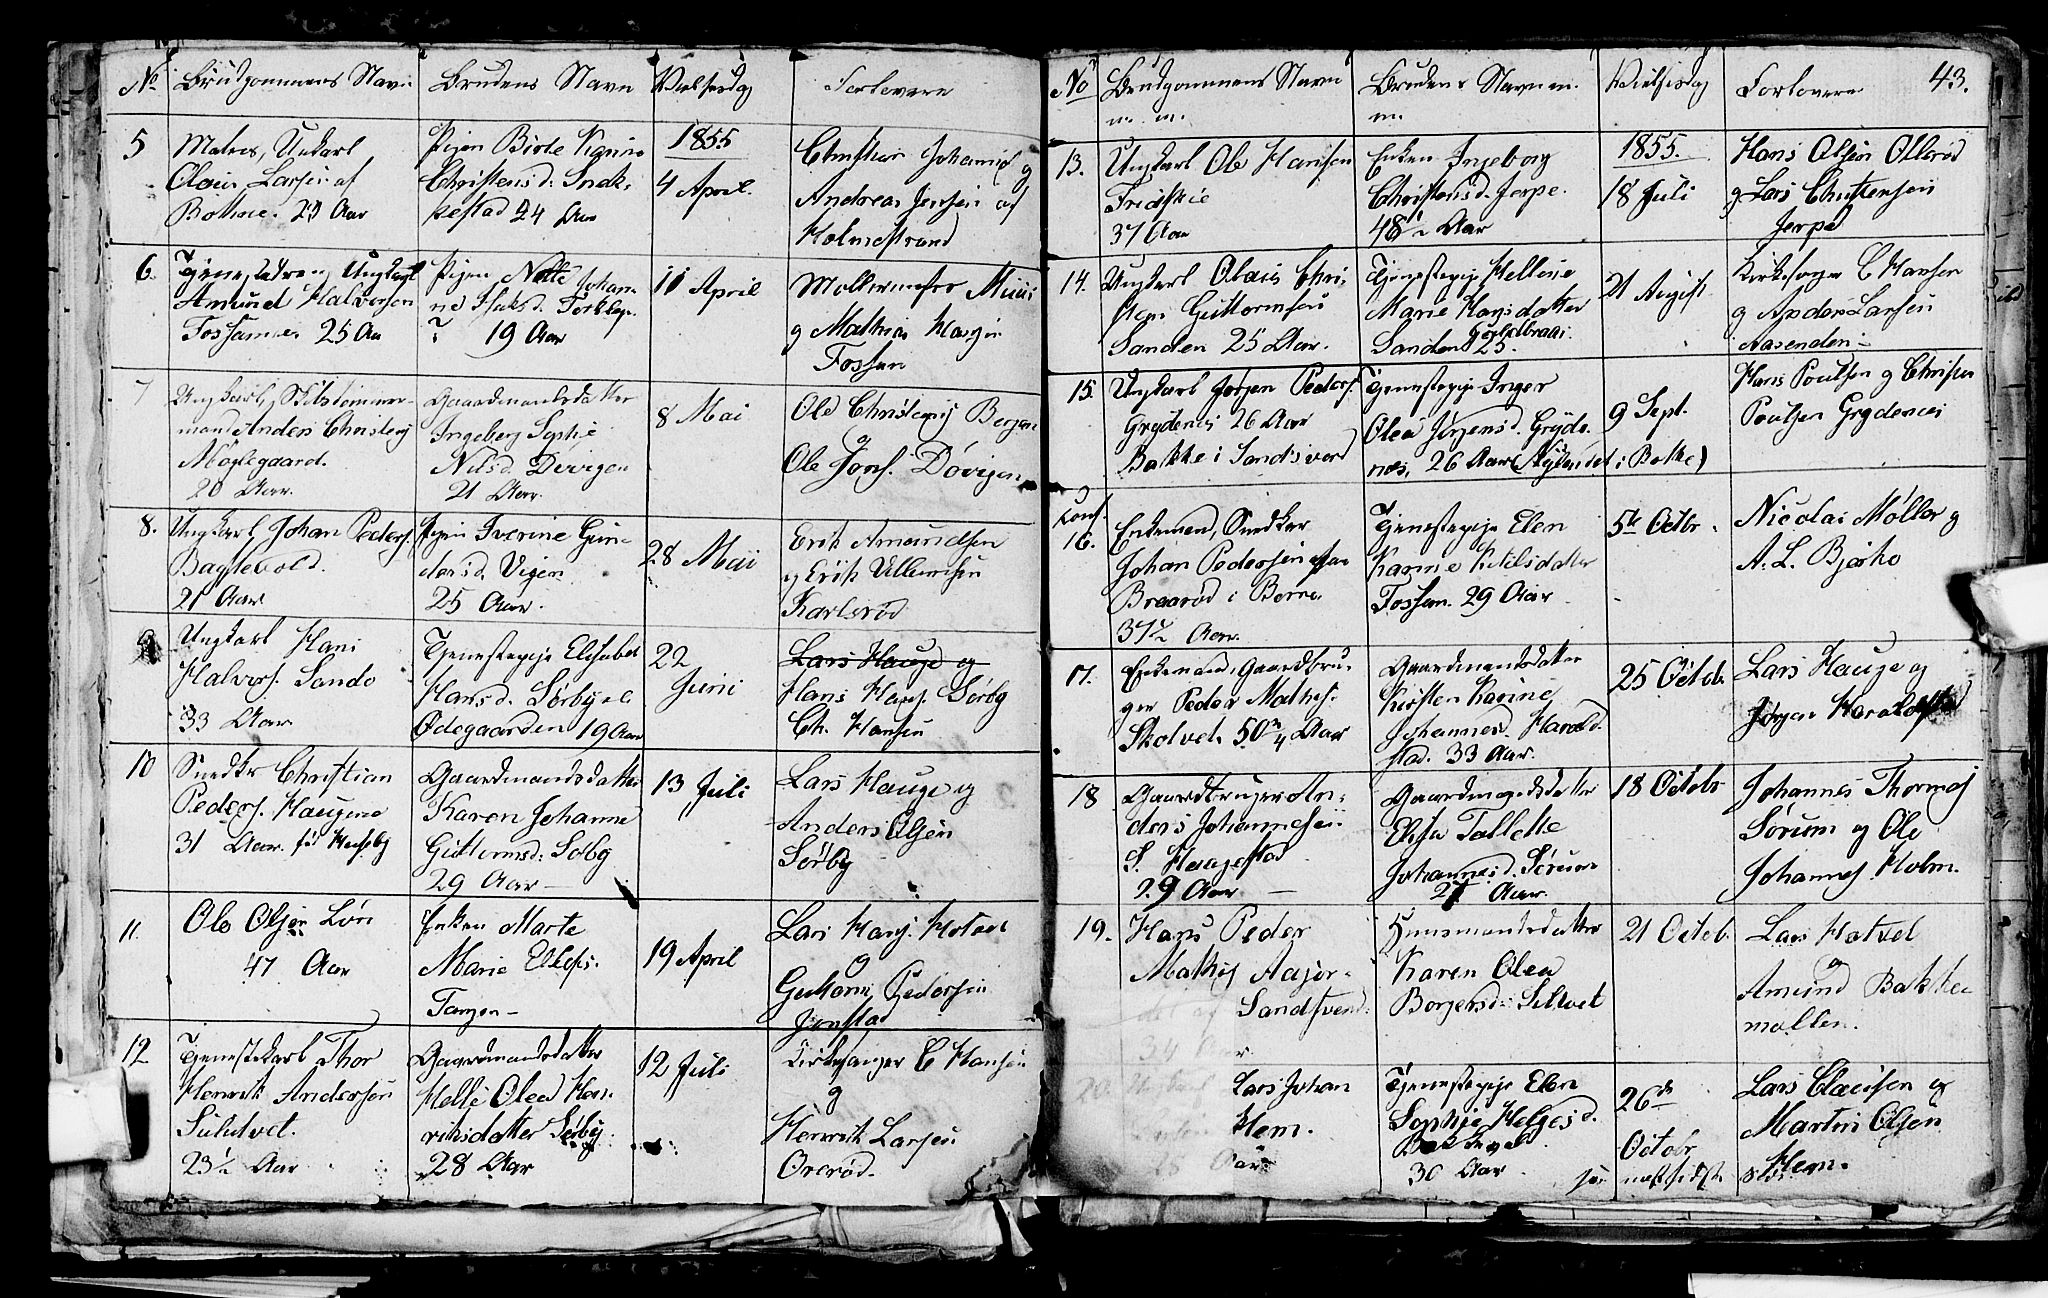 No Brudgommens Navn
Brudens Navn
Vielsesdag
Forlovere
5
Matros, Unkarl
Olaus Larsen af
Bothne. 29 Aar
Pigen Birte Karine
Christensd: Snek-
kestad 24 Aar
1855
4 April.
Christian Johannes
g
Andreas Jensen af
Holmestrand
6.
Tjenestedreng Ungkarl
Amund Halvorsen
Tossamen 25 Aar
Pigen Nette Johan-
ne
19 Aar
11 April
Møllermester
g Mathias Hansen
Fossan
7
Ungkarl, Skibstømmer-
mand Anders Christens
Møglegaard.
20 Aar.
Gaardmandsdatter
Ingeborg Sophie
Nilsd. Døvigen
21 Aar.
8 Mai
Ole Christens Bergan
g
Ole Jons. Døvigen
8.
Ungkarl, Johan Peders.
Bagtevold.
21 Aar
Pigen Iverine Gun-
dersd. Vigen
25 Aar.
28 Mai
Erik Amundsen
g Erik Ellevsen
Karlsrød
9
Ungkarl Hans
Halvors. Sando
33 Aar
Tjenestepige Elisabet
Hansd. Sørbye
Ødegaarden 19 Aar
22
Juni
Lars Hauge og
Hans Hans. Sørby
Ch. Hansen
10
Snedker Christian
Peders. Haugene
31 Aar.
Gaardmandsdatter
Karen Johanne
Guttormsd: Sørby
29 Aar —
13 Juli
Lars Hauge og
Anders Olsen
Sørby
11.
Ole Olsen Løri
47 Aar
Enken Marte
Marie Ellefs.
Tangen —
19 April
Lars Hans. Hotvet
g
Guttorm Pedersen
Jonstad
12
Tjenestekarl Thor
Henrik Andersen
Sulutvet.
23½ Aar
Gaardmandsdatter
Helle Olea Hen-
riksdatter Sørby
28 Aar
12 Juli
Kirkesanger C Hansen
g
Henrik Larsen
Orerød.
43.
No Brudgommens Navn
m. m.
Brudens Navn m.
m.
Vielsesdag
Forlovere
13.
Ungkarl Ole Hansen
37 Aar
Enken Ingeborg
Christensd. Jerpe.
48½ Aar
1855.
18 Juli
Hans Olsen Ollerød
g Lars Christensen
Jerpe
14.
Ungkarl Olaus Chri-
sten Guttormsen
Sanden 25 Aar.
Tjenestepige Helene
Marie Hansdatter
Sanden
25.
21 August
Kirkesanger C Hansen
g Anders Larsen
Aasenden —
15.
Ungkarl Jørgen Peders.
Grydenes 26 Aar
Bakke i Sandsverd
Tjenestepige Inger
Olea Jørgensd. Gryde-
nes, 26 Aar (Nylendet i Botne)
9 Sept.
Hans Poulsen g Christen
Poulsen Grydenes
Conf.
16.
Enkemand, Snedker
Johan Pedersen
Braarød i Borre
37½ Aar.
Tjenestepige Elen
Karine Nilsdatter
Fossan. 29 Aar
5te Octbr.
Nicolai Møller g
A. L. Bjerke
17.
Enkemand, Gaardbru-
ger Peder Mathis.
Skotvet. 50¾ Aar
Gaardmandsdatter
Kirsten Karine
Johannes. Harald-
stad. 33 Aar.
25 Octob.
Lars Hauge og
Jørgen Haraldstad
18
Gaardbruger An-
ders Johannesen
S. Haugestad
29 Aar —
Gaardmandsdatter
Elisa Tallette
Johannesd. Sørum
27 Aar.
18 Octobr
Johannes Thormos
Sørum og Ole
Johannes. Holm.
19.
Hans Peder
Mathis
af Sandsverd.
34 Aar
Husmandsdatter
Karen Olea
Borgersd: Sulvet
21 Octob.
Lars Hotvet
g
Amund Bakke
møllen.
20. Ungkarl Lars Johan
Hem.
28 Aar
Tjenestepige Elen
Sophie Helgesd.
30 Aar.
26de
Octobr
Lars Clausen og
Martin Olsen
Hem.